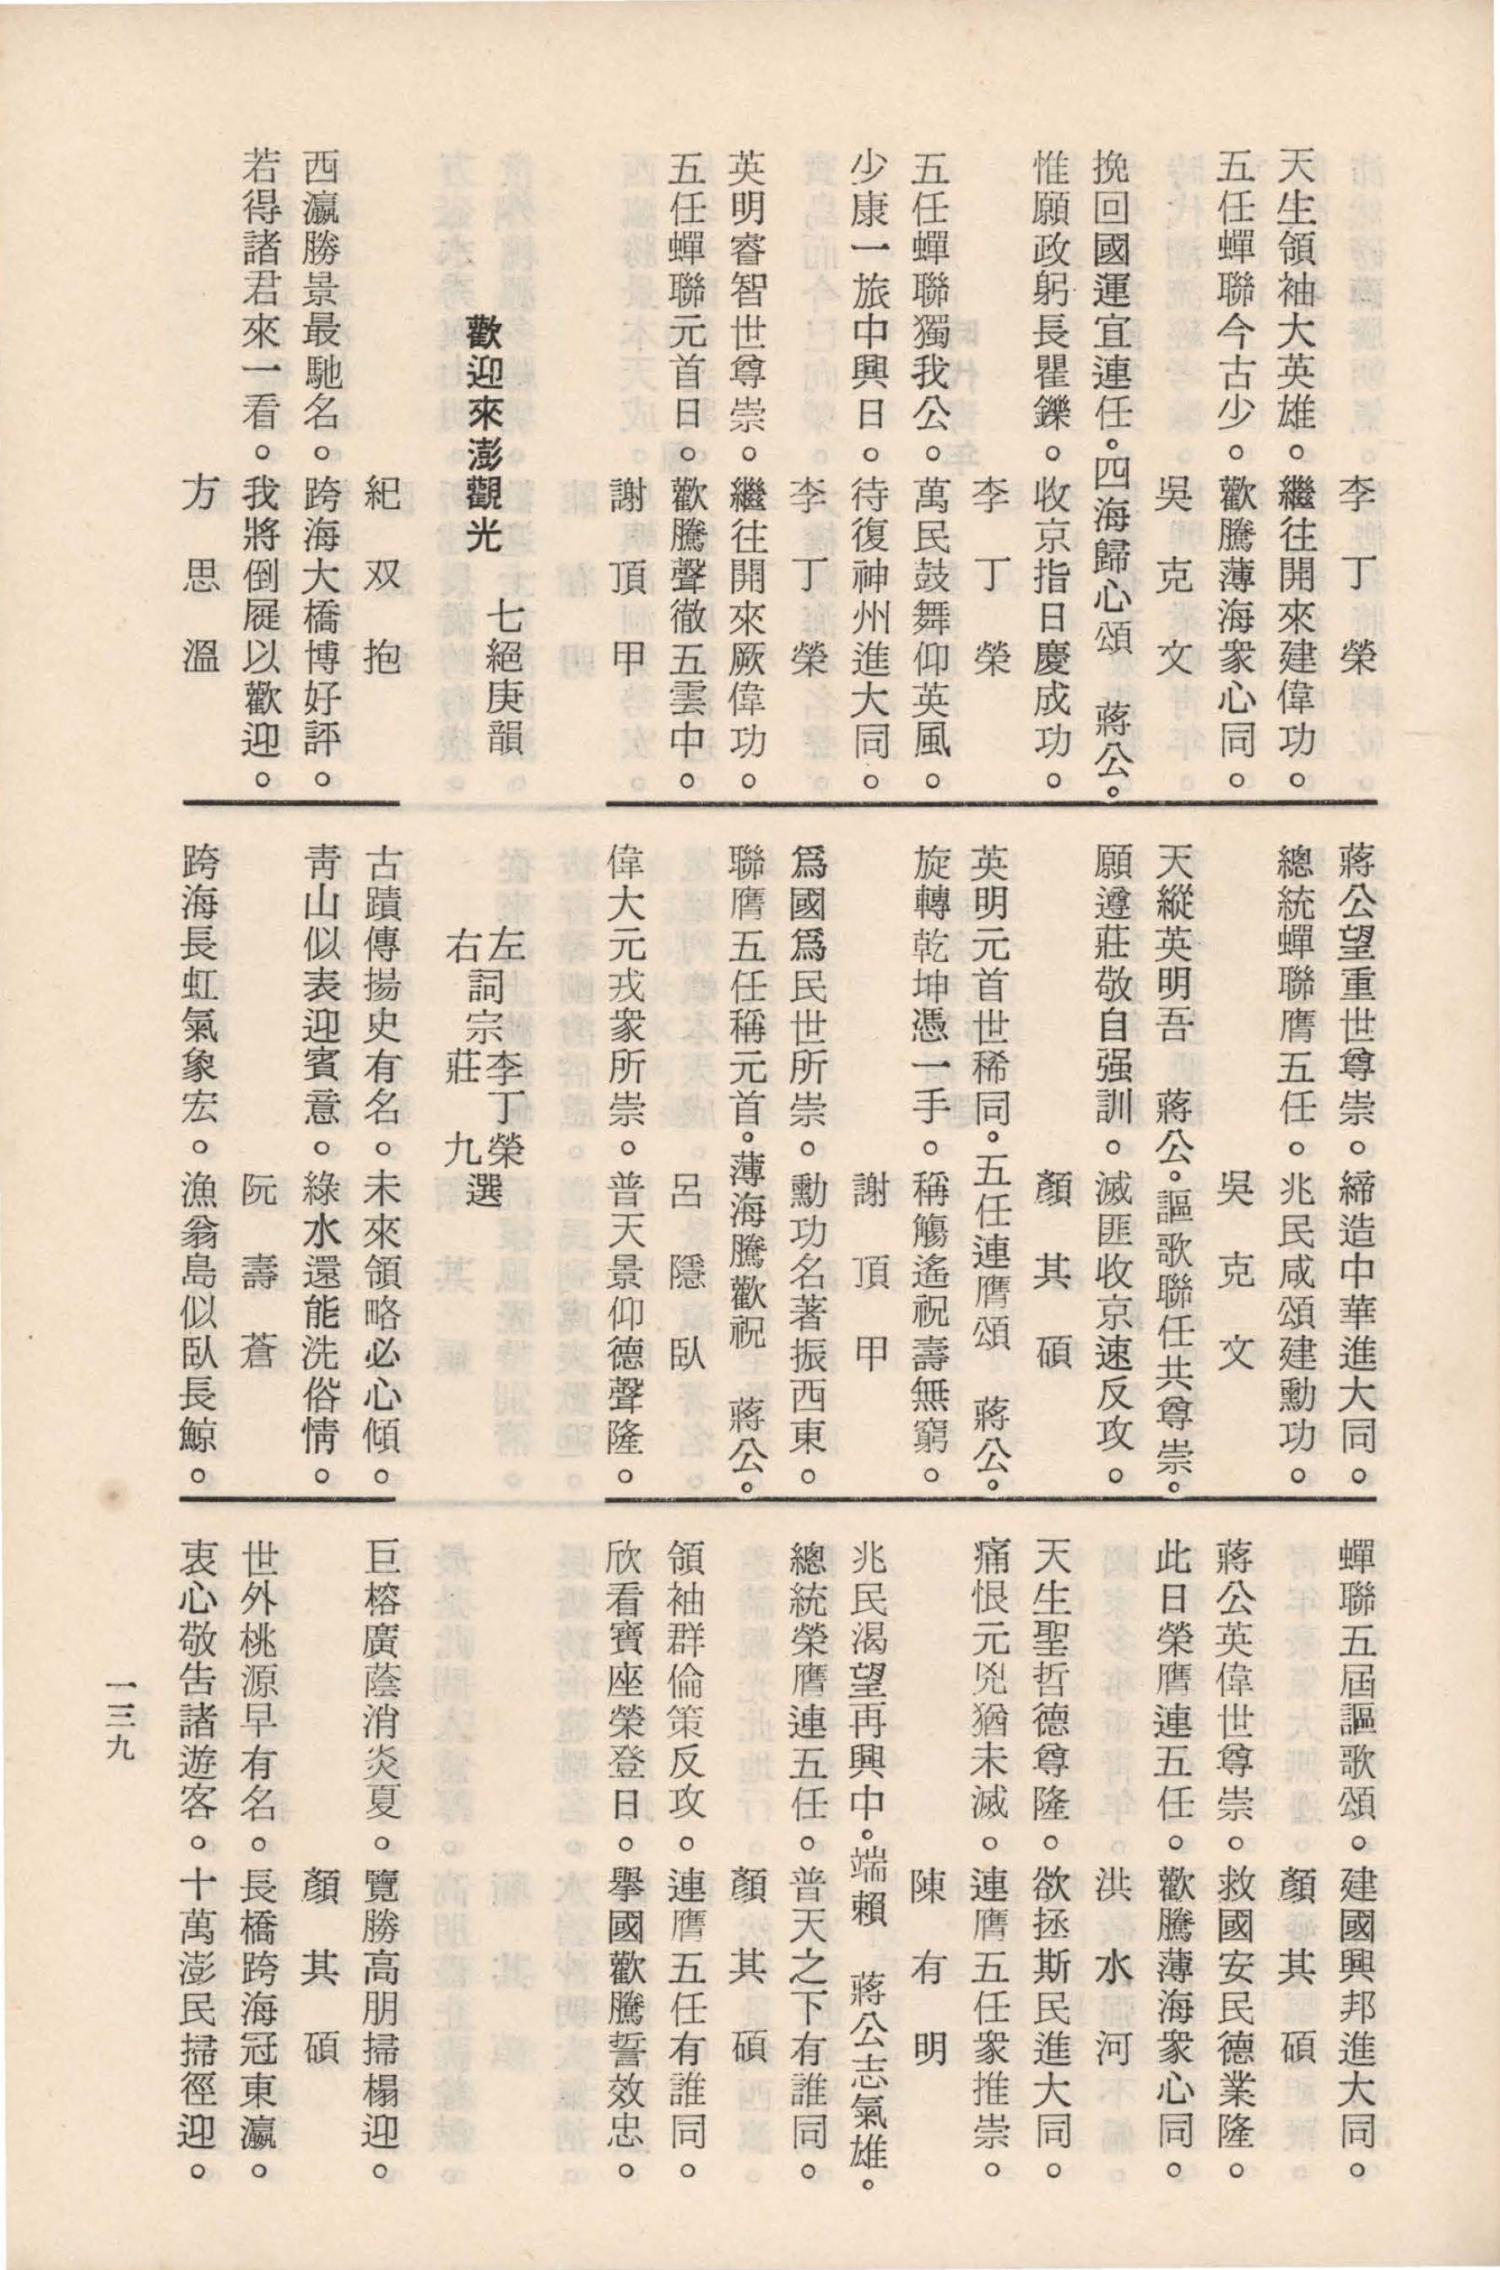 李丁榮
天生領袖大英雄。繼往開來建偉功。
五任蟬聯今古少。歡騰薄海衆心同。
吳克文
挽回國運宜連任。四海歸心頌　蔣公。
惟願政躬長瞿鑠。收京指日慶成功。
李丁榮
五任蟬聯獨我公。萬民鼓舞仰英風。
少康一旅中興日。待復神州進大同。
李丁榮
英明睿智世尊崇。繼往開來厥偉功。
五任蟬聯元首日。歡騰聲徹五雲中。
謝頂甲
蔣公望重世尊崇。締造中華進大同。
總統蟬聯膺五任。兆民咸頌建勳功。
吳克文
天縱英明吾　蔣公。謳歌聯任共尊崇。
願遵莊敬自强訓。滅匪收京速反攻。
顏其碩
英明元首世稀同。五任連膺頌　蔣公。
旋轉乾坤憑一手。稱觴遙祝壽無窮。
謝頂甲
爲國爲民世所崇。勳功名著振西東。
聯膺五任稱元首。薄海騰歡祝　蔣公。
呂隱臥
偉大元戎衆所崇。普天景仰德聲隆。
蟬聯五屆謳歌頌。建國興邦進大同。
顏其碩
蔣公英偉世尊崇。救國安民德業隆。
此日榮膺連五任。歡騰薄海衆心同。
洪水河
天生聖哲德尊隆。欲拯斯民進大同。
痛恨元兇猶未滅。連膺五任衆推崇。
陳有明
兆民渴望再興中。端賴　蔣公志氣雄。
總統榮膺連五任。普天之下有誰同。
顏其碩
領袖群倫策反攻。連膺五任有誰同。
欣看寶座榮登日。擧國歡騰誓效忠。
歡迎來澎觀光　七絕庚韻
左詞宗李丁榮選
右詞宗莊九選
紀双抱
西瀛勝景最馳名。跨海大橋博好評。
若得諸君來一看。我將倒屣以歡迎。
方思溫
古蹟傳揚史有名。未來領略必心傾。
靑山似表迎賓意。綠水還能洗俗情。
阮壽蒼
跨海長虹氣象宏。漁翁島似臥長鯨。
巨榕廣蔭消炎夏。覽勝高朋掃榻迎。
顏其碩
世外桃源早有名。長橋跨海冠東瀛。
衷心敬告諸遊客。十萬澎民掃徑迎。
一三九